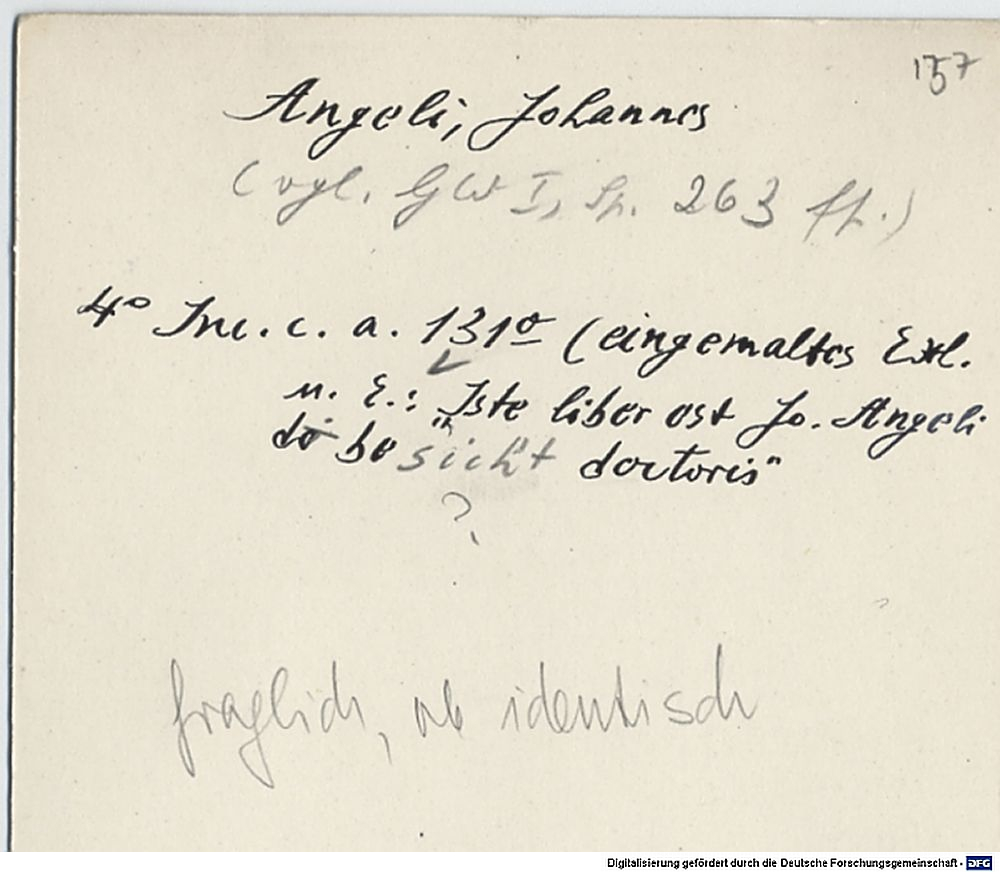 157
Angeli, Johannes
(vgl. GW I, Sp. 263 ff.)
4° Inc. c. a. 131º (eingemaltes Exl.
u. E.: "Iste liber est Jo. Angeli
de besicht doctoris"
?
fraglich, ob identisch
Digitalisierung gefördert durch die Deutsche Forschungsgemeinschaft - DFG